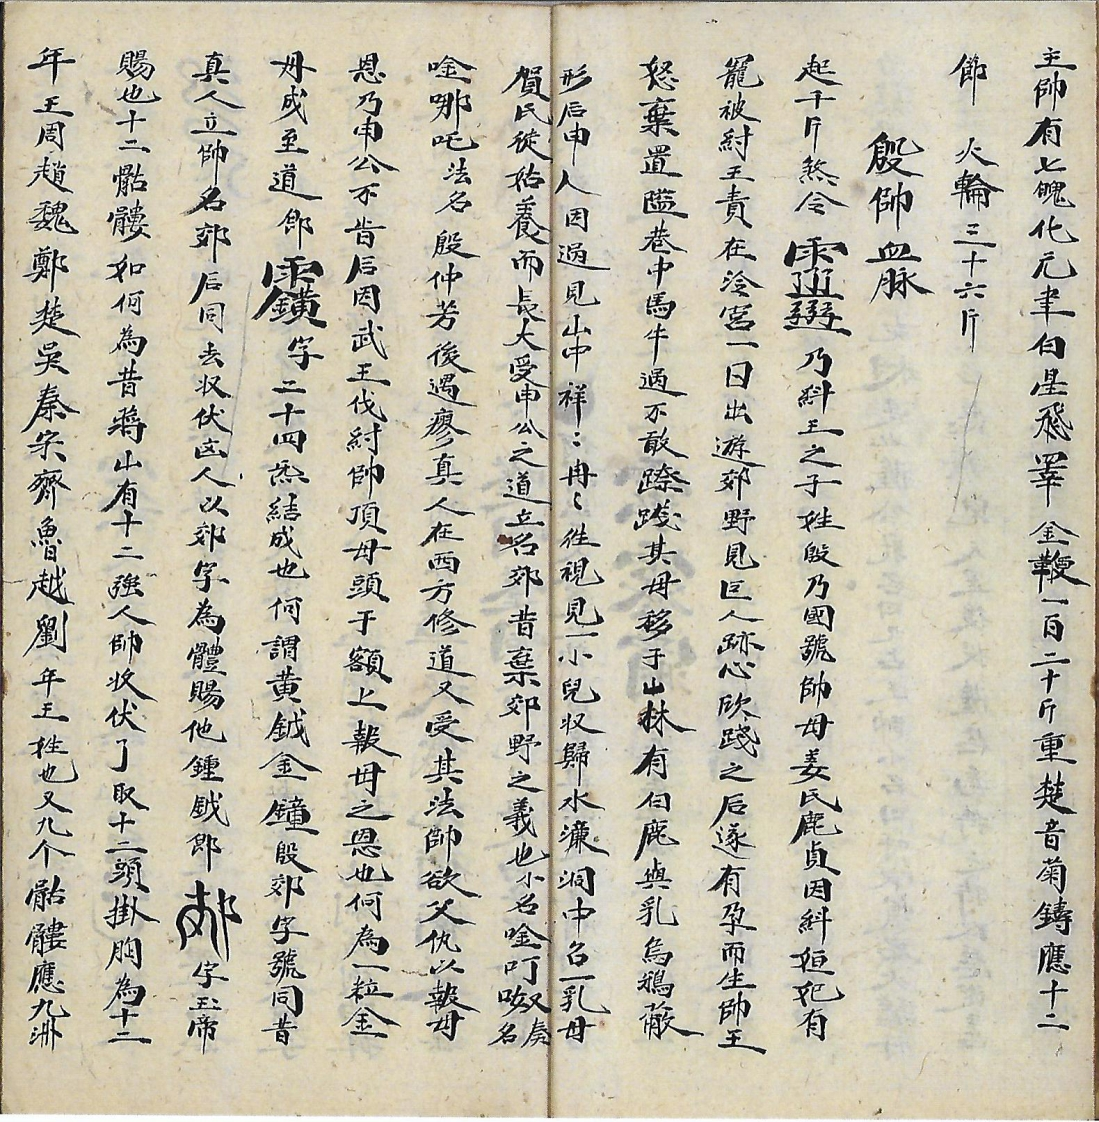 主帥有七魄化元聿白星飛罩金鞭一百二十斤重楚音菊鑄應十二
節　火輪三十六斤
殷帥血脉
起千斤煞令　乃紂王之子姓殷乃國號帥母姜氏鹿貞因紂妲妃有
寵被紂王責在冷宮一日出遊郊野見巨人跡心欣踐之后遂有孕而生帥王
怒棄置隘巷中馬牛過不敢踐其母移于山林有白鹿與乳烏鴉蔽
形后申人因過見山中祥〻冉〻徃視見一小兒収歸水濂洞中召一乳母
賀氏徒始養而長大受申公之道立名郊昔棄郊野之義也小名唫叮呶奏名
唫哪吒法名殷仲芳後遇廖真人在西方修道又受其法帥欲父仇以報母
恩乃申公不肯后因武王伐紂帥頂母頭于額上報母之恩也何為一粒金
丹成至道郎　字二十四炁結成也何謂黄鉞金鐘殷郊字號同昔
真人立帥名郊后同去収伏凶人以郊字為體賜他鍾鉞郎　字玉帝
賜也十二骷髏如何為昔蔣山有十二強人帥收伏了取十二頭掛胸為十二
年王周趙魏鄭楚吳秦宋齊魯越劉年王姓也又九个骷髏應九洲